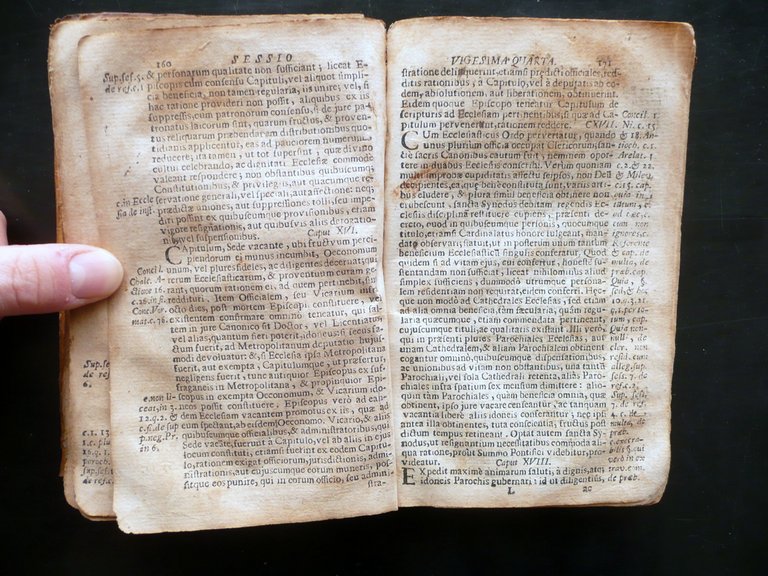 160 SESSIO
& personarum qualitate non sufficiant; liceat E-
piscopis cum consensu Capituli, vel aliquot simplici-
cia beneficia, non tamen regularia, iis unire; vel, si
hac ratione provideri non possit, aliquibus ex iis
suppressis, cum patronorum consensu, si de jure pa-
tronatus laicorum sint, quarum fructus, & proven-
tus reliquarum præbendarum distributionibus quoti-
dianis applicentur, eas ad pauciorem numerum
reducere; ita tamen, ut tot supersint, quæ divino
cultui celebrando, ac dignitati Ecclesiæ commodè
valeant respondere; non obstantibus quibuscumque
Constitutionibus, & privilegiis, aut quacumque re-
servatione generali, vel speciali, aut affectione: neq;
prædictæ uniones, aut suppressiones tolli, seu impe-
diri possint ex quibuscumque provisionibus, etiam
vigore resignationis, aut quibusvis aliis derogatio-
nibus, vel suspensionibus. Caput XVI.
CApitulum, Sede vacante, ubi fructuum perci-
piendorum ei munus incumbit, Oeconomum
unum, vel plures fideles, ac diligentes decernat, qui
rerum Ecclesiasticarum, & proventuum curam ge-
rant, quorum rationem ei, ad quem pertinebit, sint
reddituri. Item Officialem, seu Vicarium infra
octo dies, post mortem Episcopi constituere, vel
existentem confirmare omnino teneatur, qui sal-
tem in jure Canonico sit Doctor, vel Licentiatus
vel alias, quantum fieri poterit, idoneus: si secus fa-
ctum fuerit, ad Metropolitanum deputatio hujus-
modi devolvatur: &, si Ecclesia ipsa Metropolitana
fuerit, aut exempta, Capitulumque, ut præfertur,
negligens fuerit, tunc antiquior Episcopus ex suf-
fraganeis in Metropolitana, & propinquior Epi-
scopus in exempta Oeconomum, & Vicarium ido-
neos possit constituere. Episcopus verò ad eam-
dem Ecclesiam vacantem promotus ex iis, quæ ad
eum spectant, ab eisdem Oeconomo, Vicario, & aliis
quibuscumque officialibus, & administratoribus, qui
Sede vacante, fuerunt à Capitulo, vel ab aliis in ejus
locum constituti, etiamsi fuerint ex eodem Capitu-
lo, rationem exigat officiorum, jurisdictionis, admi-
nistrationis, aut cujuscumque eorum muneris, pos-
sitque eos punire, qui in eorum officio, seu admini-
stra-
VIGESIMA QUARTA.
stratione deliquerint, etiamsi prædicti officiales, red-
ditis rationibus, à Capitulo, vel à deputatis ab eo-
dem, absolutionem, aut liberationem, obtinuerint.
Eidem quoque Episcopo teneatur Capitulum de
scripturis ad Ecclesiam pertinentibus, si quæ ad Ca-
pitulum pervenerint, rationem reddere. CXVII.
CUm Ecclesiasticus Ordo pervertatur, quando
unus plurium officia occupat Clericorum, san-
cte sacris Canonibus cautum fuit, neminem opor-
tere in duabus Ecclesiis conscribi. Verùm quoniam
multi improbæ cupiditatis affectu seipsos, non Deum
decipientes, ea, quæ benè constituta sunt, variis arti-
bus eludere, & plura simul beneficia obtinere non
erubescunt, sancta Synodus debitam regendis Ec-
clesiis disciplinam restituere cupiens, præsenti de-
creto, quod in quibuscumque personis, quocumque
titulo, etiamsi Cardinalatus honore fulgeant, man-
dat observari, statuit, ut in posterum unum tantum
beneficium Ecclesiasticum singulis conferatur. Quod
quidem si ad vitam ejus, cui confertur, honestè su-
stentandam non sufficiat, liceat nihilominus aliud
simplex sufficiens, dummodo utrumque persona-
lem residentiam non requirat, eidem conferri. Hæc-
que non modò ad Cathedrales Ecclesias, sed etiam ad
alia omnia beneficia, tàm sæcularia, quàm regu-
laria quæcumque, etiam commendata pertineant,
cujuscumque tituli, ac qualitatis existant. Illi verò,
qui in præsenti plures Parochiales Ecclesias, aut
unam Cathedralem, & aliam Parochialem obtinent,
cogantur omninò, quibuscumque dispensationibus,
ac unionibus ad vitam non obstantibus, una tantum
Parochiali, vel sola Cathedrali retenta, alias Paro-
chiales infra spatium sex mensium dimittere: alio-
quin tàm Parochiales, quàm beneficia omnia, quæ
obtinent, ipso jure vacare censeantur, ac tanquam
vacantia liberè aliis idoneis conferantur; nec ipsi
antea illa obtinentes, tuta conscientia, fructus post
dictum tempus retineant. Optat autem sancta Sy-
nodus, ut resignantium necessitatibus commoda ali-
qua ratione, prout Summo Pontifici videbitur, pro-
videatur. Caput XVIII.
EXpedit maximè animarum saluti, à dignis, atq;
idoneis Parochis gubernari: id ut diligentiùs,
L ac